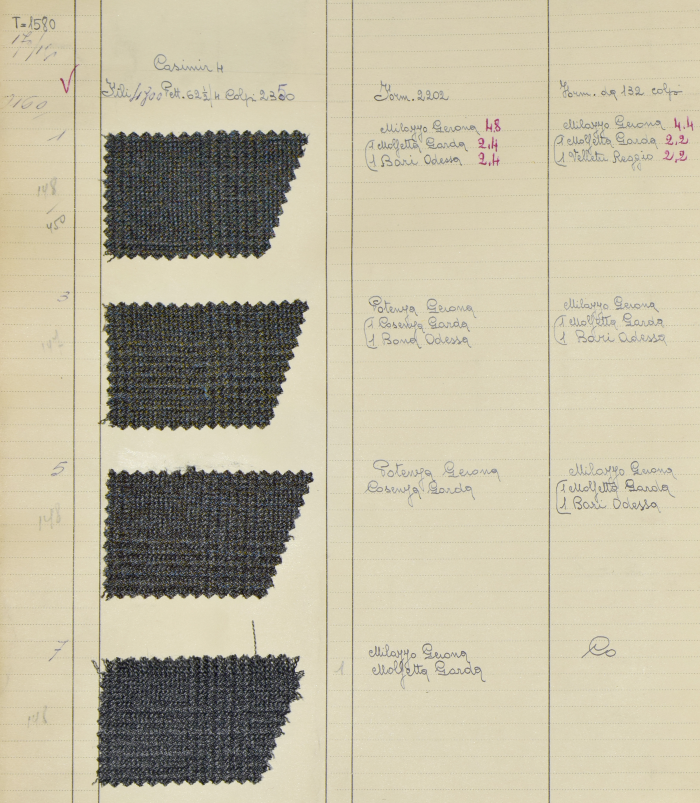 T=1580
Casimir 4
Fili 1700 Pett. 62½/4 Colpi 2350
Form. 2202
Form. da 132 colpi
1
Milazzo Gerona 4.8
(1 Molfetta Garda 2,4
1 Bari Odessa 2,4
Milazzo Gerona 4.4
(1 Molfetta Garda 2,2
1 Velletri Reggio 2,2
148
450
3
Potenza Gerona
(1 Cosenza Garda
1 Bona Odessa
Milazzo Gerona
(1 Molfetta Garda
1 Bari Odessa
148
5
Potenza Gerona
Cosenza Garda
Milazzo Gerona
(1 Molfetta Garda
1 Bari Odessa
148
7
Milazzo Gerona
1 Molfetta Garda
Co
148